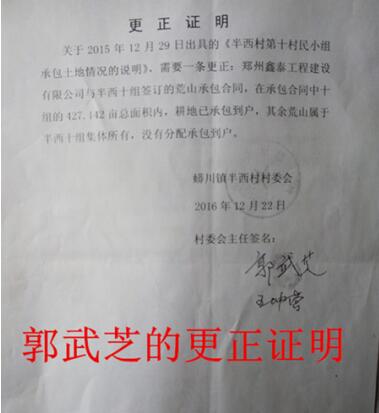 更正证明
关于2015年12月29日出具的《半西村第十村民小组
承包土地情况的说明》，需要一条更正：郑州鑫泰工程建设
有限公司与半西十组签订的荒山承包合同，在承包合同中十
组的427.142亩总面积内，耕地已承包到户，其余荒山属于
半西十组集体所有，没有分配承包到户。
蟒川镇半西村村委会
2016年12月22日
村委会主任签名：
郭武芝
郭武芝的更正证明